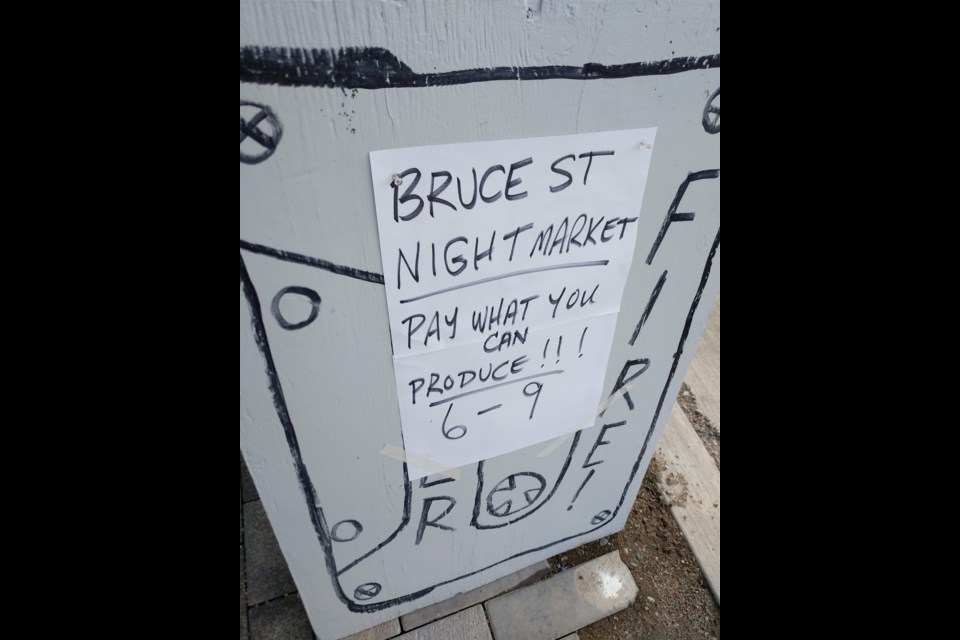 BRUCE ST
NIGHT MARKET
PAY WHAT YOU
CAN
PRODUCE !!!
6 - 9
FIRE!
R